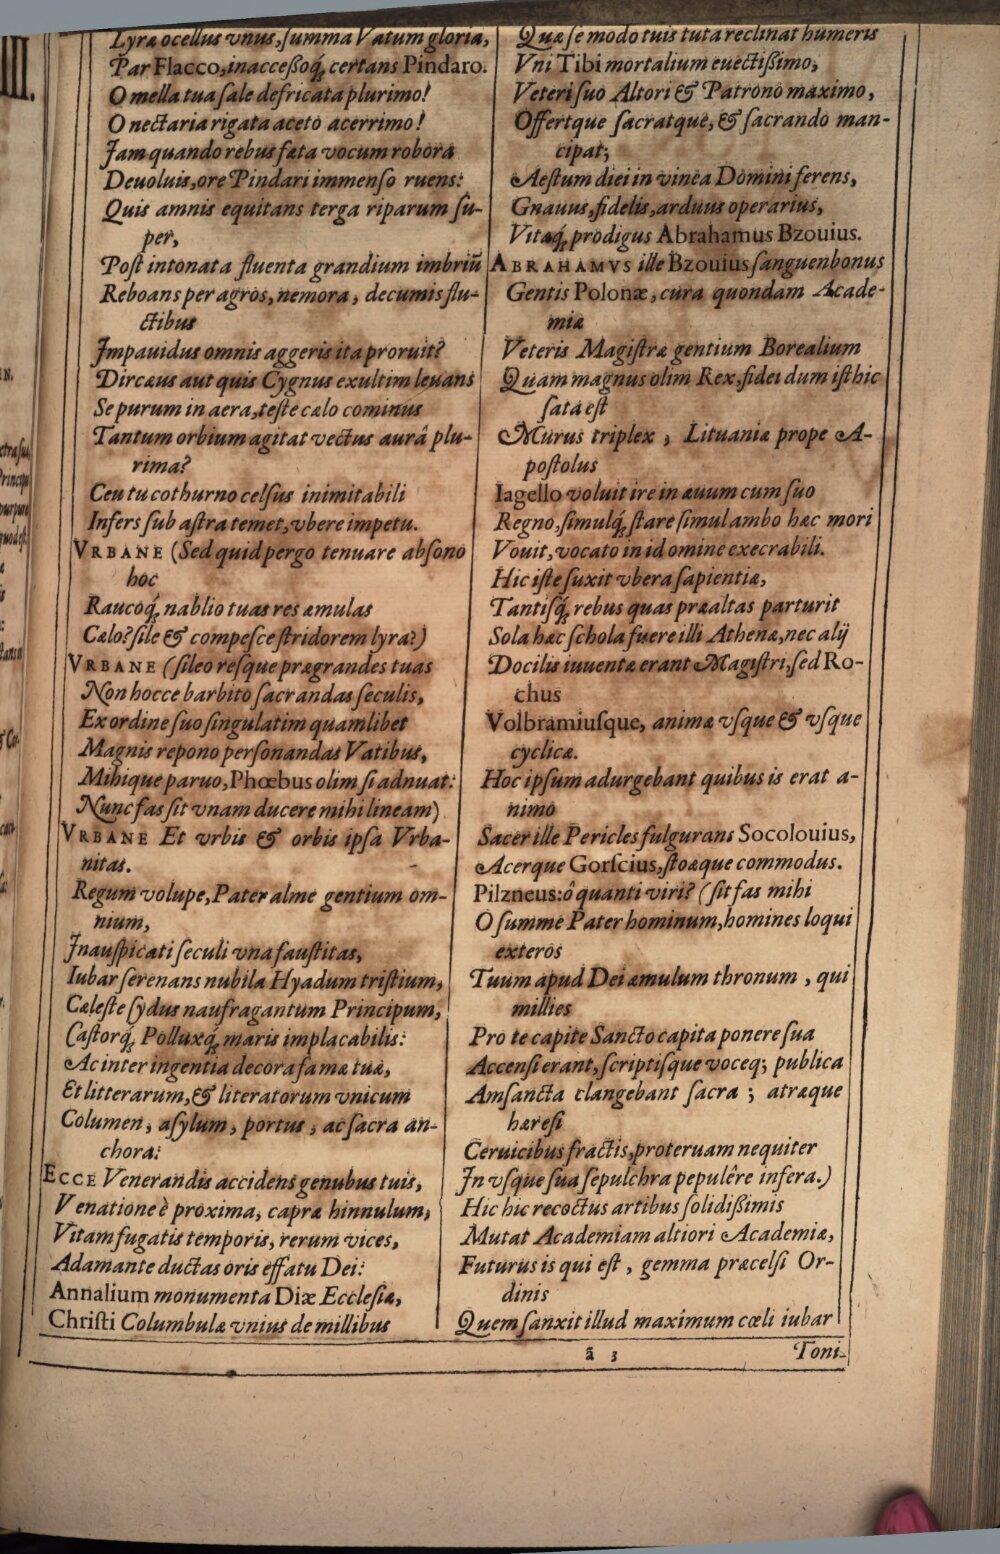 III.
Lyræ ocellus vnus, ſumma Vatum gloria,
Par Flacco, inacceßoq́; certans Pindaro.
O mella tua ſale defricata plurimo!
O nectaria rigata aceto acerrimo!
Jam quando rebus fæta vocum robora
Deuoluis, ore Pindari immenſo ruens:
Quis amnis equitans terga riparum ſu-
per,
Poſt intonata fluenta grandium imbriũ
Reboans per agros, nemora, decumis flu-
ctibus
Jmpauidus omnis aggeris ita proruit?
Dircæus aut quis Cygnus exultim leuans
Se purum in aera, teſte cælo cominus
Tantum orbium agitat vectus aurâ plu-
rima?
Ceu tu cothurno celſus inimitabili
Infers ſub aſtra temet, vbere impetu.
VRBANE (Sed quid pergo tenuare abſono
hoc
Raucoq́; nablio tuas res æmulas
Cælo? ſile & compeſce ſtridorem lyra?)
VRBANE (ſileo reſque prægrandes tuas
Non hocce barbito ſacrandas ſeculis,
Ex ordine ſuo ſingulatim quamlibet
Magnis repono perſonandas Vatibus,
Mihique paruo, Phœbus olim ſi adnuat:
Nunc fas ſit vnam ducere mihi lineam)
VRBANE Et vrbis & orbis ipſa Vrba-
nitas.
Regum volupe, Pater alme gentium om-
nium,
Jnauſpicati ſeculi vna fauſtitas,
Iubar ſerenans nubila Hyadum triſtium,
Cæleſte ſydus naufragantum Principum,
Caſtorq́; Polluxq́; maris implacabilis:
Ac inter ingentia decora famæ tuæ,
Et litterarum, & literatorum vnicum
Columen, aſylum, portus, ac ſacra an-
chora:
ECCE Venerandis accidens genubus tuis,
Venatione è proxima, capræ hinnulum,
Vitam fugatis temporis, rerum vices,
Adamante ductas oris effatu Dei:
Annalium monumenta Diæ Eccleſiæ,
Chriſti Columbulæ vnius de millibus
Quæ ſe modo tuis tuta reclinat humeris
Vni Tibi mortalium euectißimo,
Veteri ſuo Altori & Patrono maximo,
Offertque ſacratque, & ſacrando man-
cipat;
Aeſtum diei in vinea Domini ferens,
Gnauus, fidelis, arduus operarius,
Vitæq́; prodigus Abrahamus Bzouius.
ABRAHAMVS ille Bzouius ſanguen bonus
Gentis Polonæ, cura quondam Acade-
miæ
Veteris Magiſtræ gentium Borealium
Quam magnus olim Rex, fidei dum iſthic
ſata eſt
Murus triplex, Lituaniæ prope A-
poſtolus
Iagello voluit ire in æuum cum ſuo
Regno, ſimulq́; ſtare ſimul ambo hæc mori
Vouit, vocato in id omine execrabili.
Hic iſte ſuxit vbera ſapientiæ,
Tantiſq́; rebus quas præaltas parturit
Sola hæc ſchola fuere illi Athenæ, nec alij
Docilis iuuentæ erant Magiſtri, ſed Ro-
chus
Volbramiuſque, animæ vſque & vſque
cyclicæ.
Hoc ipſum adurgebant quibus is erat a-
nimo
Sacer ille Pericles fulgurans Socolouius,
Acerque Gorſcius, ſtoæque commodus.
Pilzneus: ô quanti viri? (ſit fas mihi
O ſumme Pater hominum, homines loqui
exteros
Tuum apud Dei æmulum thronum, qui
millies
Pro te capite Sancto capita ponere ſua
Accenſi erant, ſcriptiſque voceq; publica
Amſancta clangebant ſacra; atræque
hæreſi
Ceruicibus fractis, proteruam nequiter
Jn vſque ſua ſepulchra pepulêre infera.)
Hic hic recoctus artibus ſolidißimis
Mutat Academiam altiori Academiæ,
Futurus is qui eſt, gemma præcelſi Or-
dinis
Quem ſanxit illud maximum cœli iubar
ã 3
Toni-